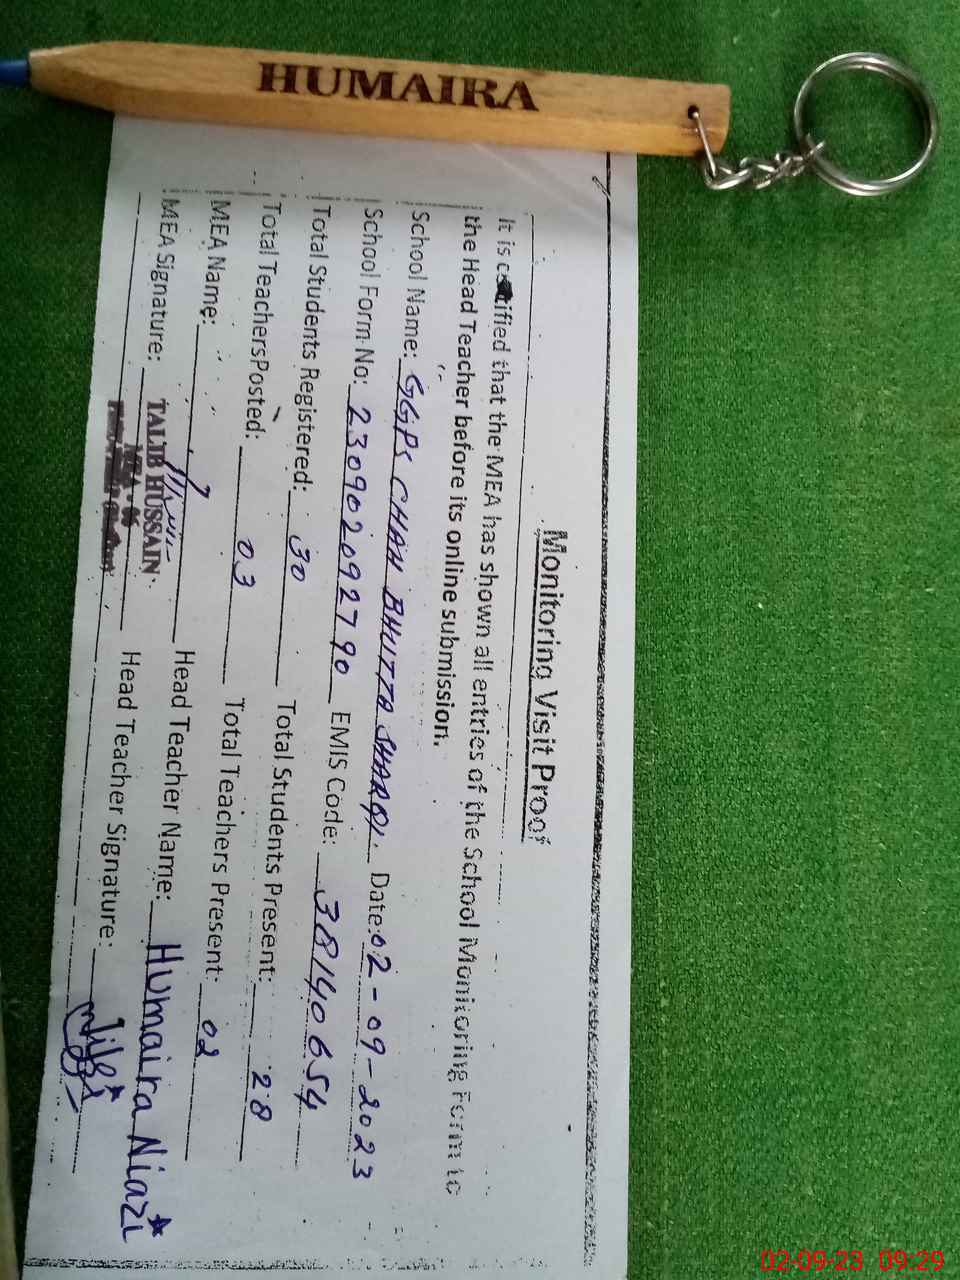 HUMAIRA
Monitoring Visit Proof
It is certified that the MEA has shown all entries of the School Monitoring Form to
the Head Teacher before its online submission.
School Name: GGPS CHAH BHUTTA SHARQI. Date: 02-09-2023
School Form No: 230902092790 EMIS Code: 38140654
Total Students Registered: 30 Total Students Present: 28
Total Teachers Posted: 03 Total Teachers Present: 02
MEA Name: Head Teacher Name: Humaira Niazi
MEA Signature: Head Teacher Signature:
TALIB HUSSAIN
02-09-23 09:29